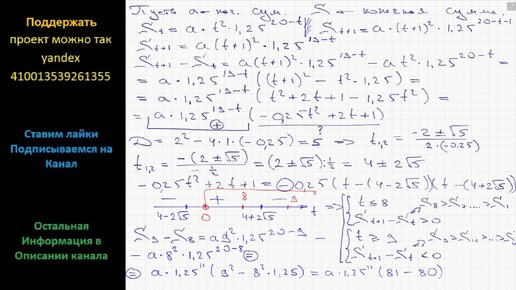 Поддержать
проект можно так
yandex
410013539261355
Ставим лайки
Подписываемся на
Канал
Остальная
Информация в
Описании канала
Пусть a - нач. сум. S - конечная сумма.
S_t = a · t² · 1,25^(20-t) S_(t+1) = a · (t+1)² · 1,25^(20-t-1)
S_(t+1) = a(t+1)² · 1,25^(19-t)
S_(t+1) - S_t = a(t+1)² · 1,25^(19-t) - at² · 1,25^(20-t) =
= a · 1,25^(19-t) ((t+1)² - t² · 1,25) =
= a · 1,25^(19-t) (t² + 2t + 1 - 1,25t²) =
= a · 1,25^(19-t) (-0,25t² + 2t + 1)
+ ?
D = 2² - 4·1·(-0,25) = 5 ⇒ t_(1,2) = (-2 ± √5)/(2·(-0,25))
t_(1,2) = -(2 ± √5)/(-1/2) = (2 ± √5) : 1/2 = 4 ± 2√5
-0,25t² + 2t + 1 = -0,25 (t - (4-2√5))(t - (4+2√5))
- + 8 - 9
4-2√5 0 4+2√5 t ⇒
{ t ≤ 8 S_(t+1) - S_t > 0 S_8 > S_7 > ... > S_1
{ t ≥ 9 S_(t+1) - S_t < 0 S_9 > S_10 > ... >
S_9 - S_8 = a9² · 1,25^(20-9) -
- a · 8² · 1,25^(20-8) =
= a · 1,25^11 (9² - 8² · 1,25) = a · 1,25^11 (81 - 80)